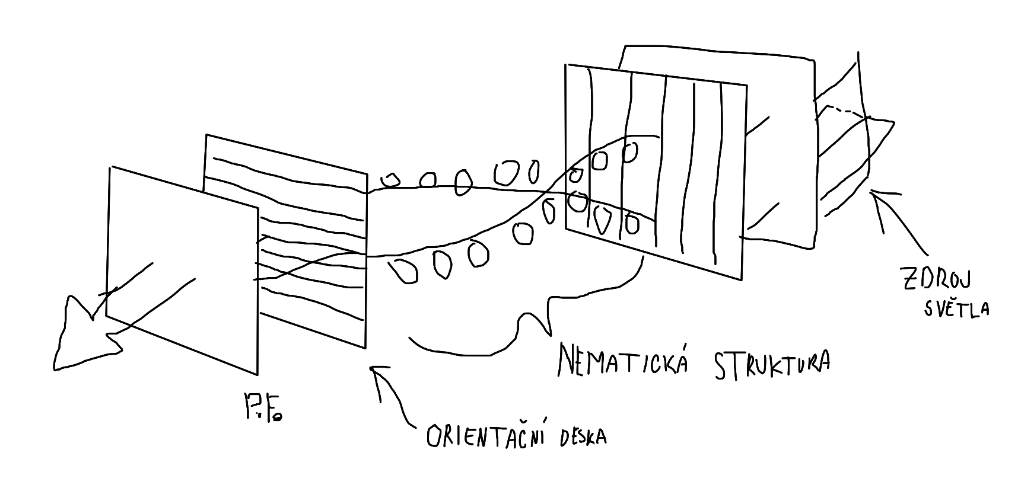 ZDROJ
SVĚTLA
NEMATICKÁ STRUKTURA
P.F.
ORIENTAČNÍ DESKA